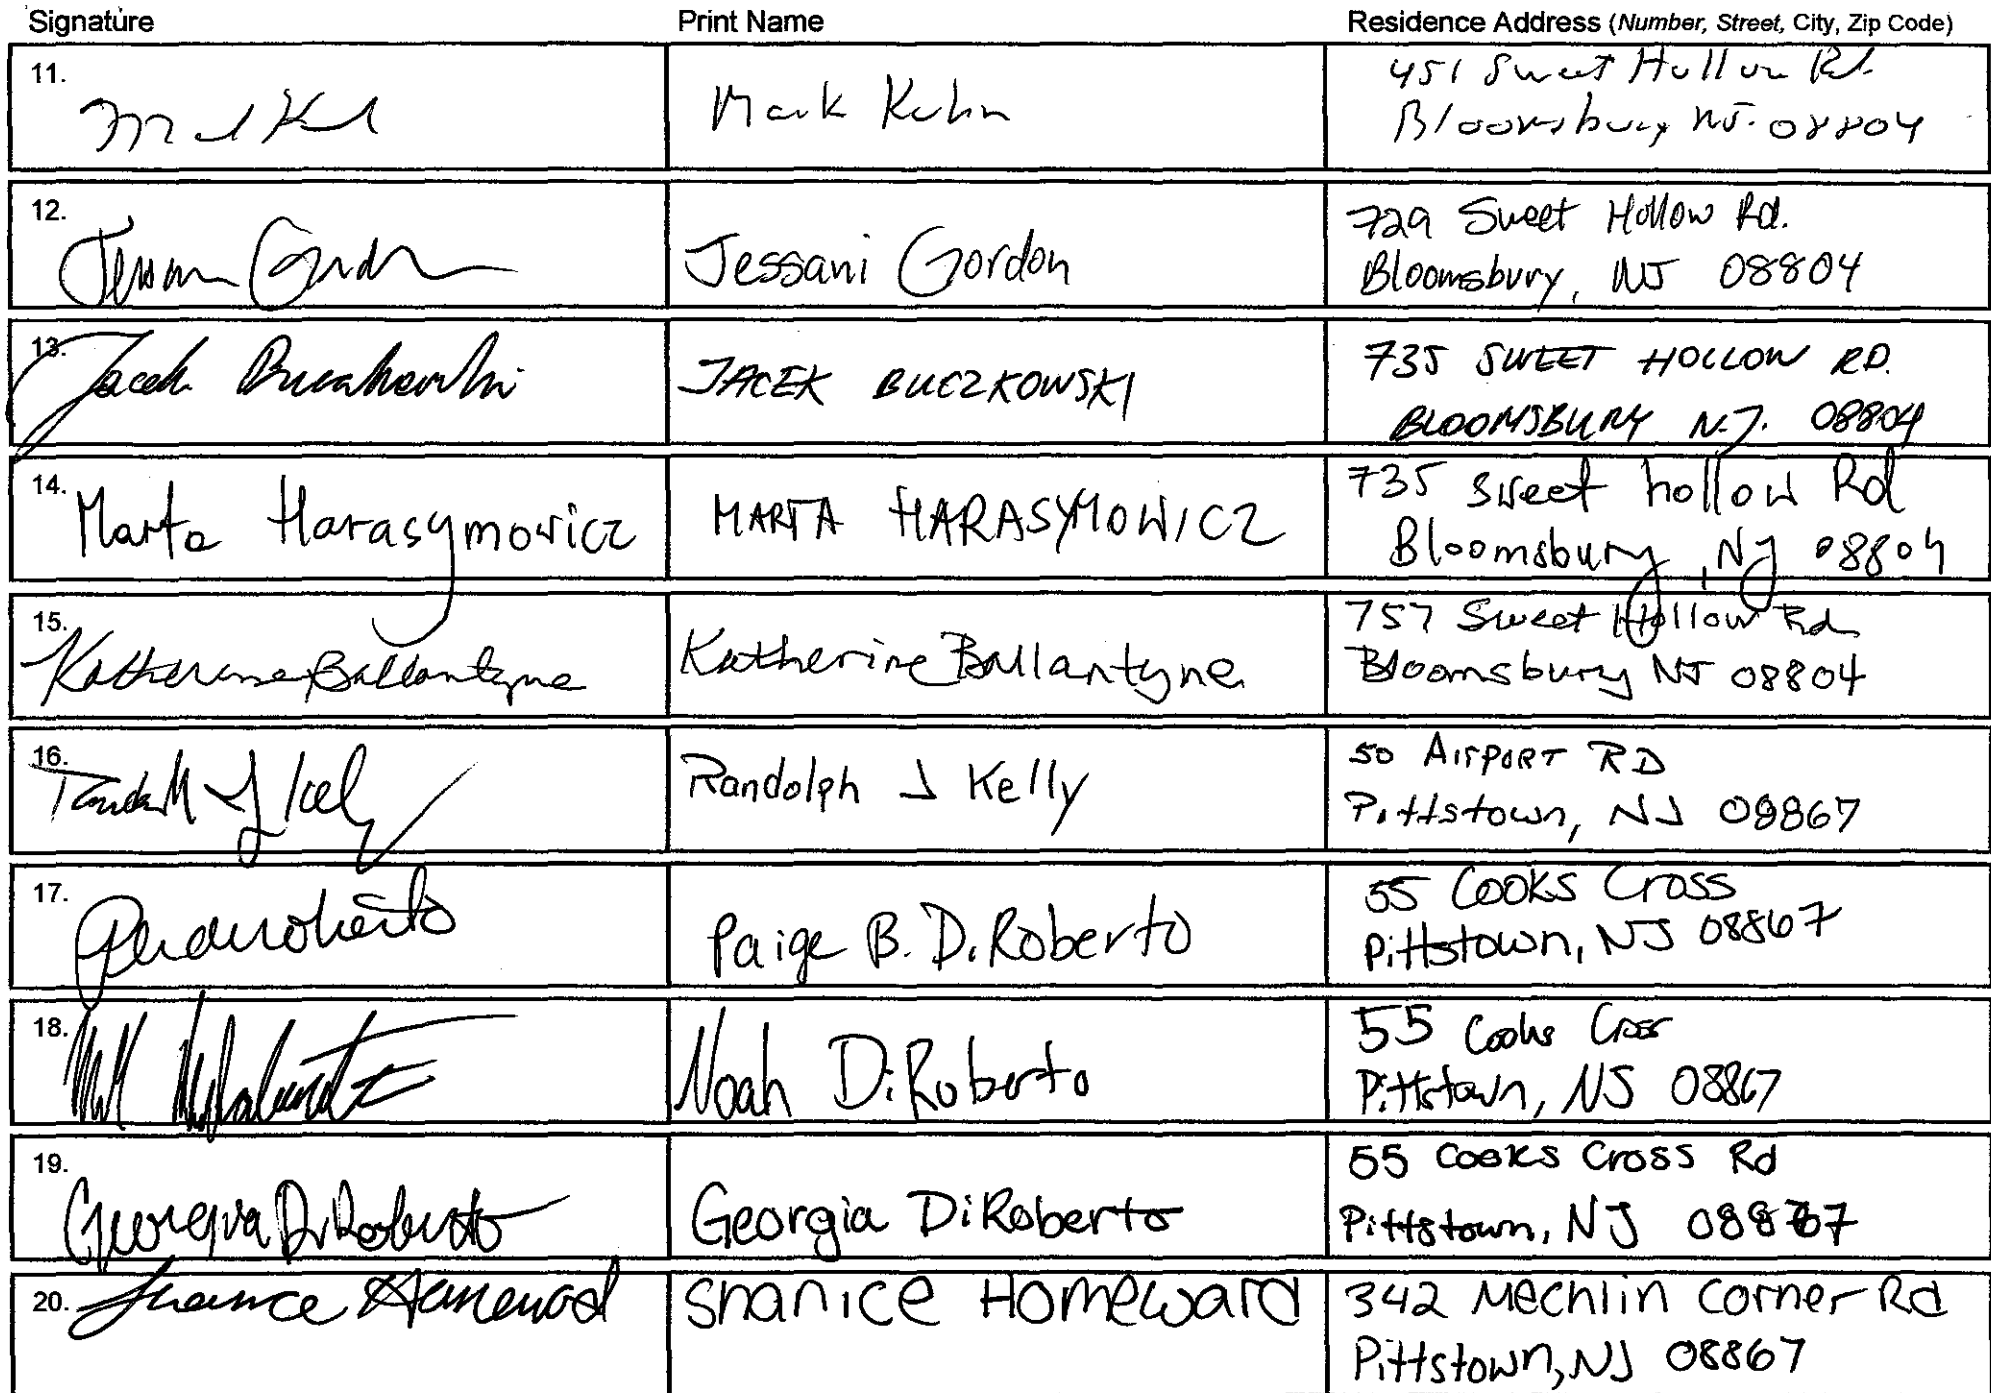 Signature Print Name Residence Address (Number, Street, City, Zip Code)
11. Mark Kuhn 451 Sweet Hollow Rd.
Bloomsbury NJ. 08804
12. Jessani Gordon 729 Sweet Hollow Rd.
Bloomsbury, NJ 08804
13. Jacek Buczkowski JACEK BUCZKOWSKI 735 SWEET HOLLOW RD.
BLOOMSBURY N.J. 08804
14. Marta Harasymowicz MARTA HARASYMOWICZ 735 Sweet hollow Rd
Bloomsbury, NJ 08804
15. Katherine Ballantyne Katherine Ballantyne 757 Sweet Hollow Rd
Bloomsbury NJ 08804
16. Randolph J Kelly 50 AIRPORT RD
Pittstown, NJ 08867
17. Paige B. DiRoberto 55 Cooks Cross
Pittstown, NJ 08867
18. Noah DiRoberto 55 Cooks Cross
Pittstown, NJ 08867
19. Georgia DiRoberto Georgia DiRoberto 55 Cooks Cross Rd
Pittstown, NJ 08867
20. Shanice Homeward 342 Mechlin Corner Rd
Pittstown, NJ 08867